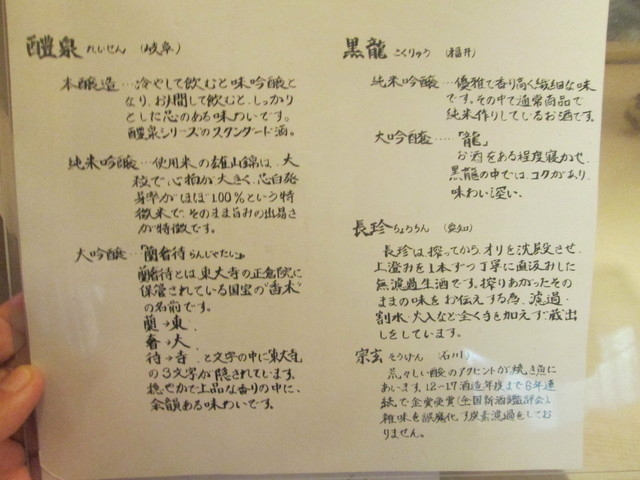 醴泉 れいせん (岐阜)
本醸造…冷やして飲むと味吟醸と
なり、お燗して飲むと、しっかり
とした芯のある味わいです。
醴泉シリーズのスタンダード酒。
純米吟醸…使用米の雄山錦は、大
粒で心拍が大きく、芯白発
芽率がほぼ100%という特
徴米で、そのまま旨みの出易さ
が特徴です。
大吟醸…「蘭奢待 らんじゃたい」
蘭奢待とは東大寺の正倉院に
保管されている国宝の"香木"
の名前です。
蘭→東、
奢→大
待→寺、と文字の中に"東大寺"
の3文字が隠されています。
穏やかで上品な香りの中に、
余韻ある味わいです。
黒龍 こくりゅう (福井)
純米吟醸…優雅で香り高く繊細な味
です。その中で通常商品で
純米作りしているお酒です。
大吟醸…「龍」
お酒をある程度寝かせ、
黒龍の中では、コクがあり、
味わい深い。
長珍 ちょうちん (愛知)
長珍は、搾ってから、オリを沈殿させ、
上澄みを1本ずつ丁寧に直汲みした
無濾過生酒です。搾りあがったその
ままの味をお伝えする為、濾過・
割水・火入など全く手を加えず蔵出
しをしています。
宗玄 そうげん (石川)
荒々しい酸のアクセントが焼き魚に
あいます。12~17酒造年度まで6年連
続で金賞受賞(全国新酒鑑評会)
雑味を誤魔化す炭素濾過をしてお
りません。